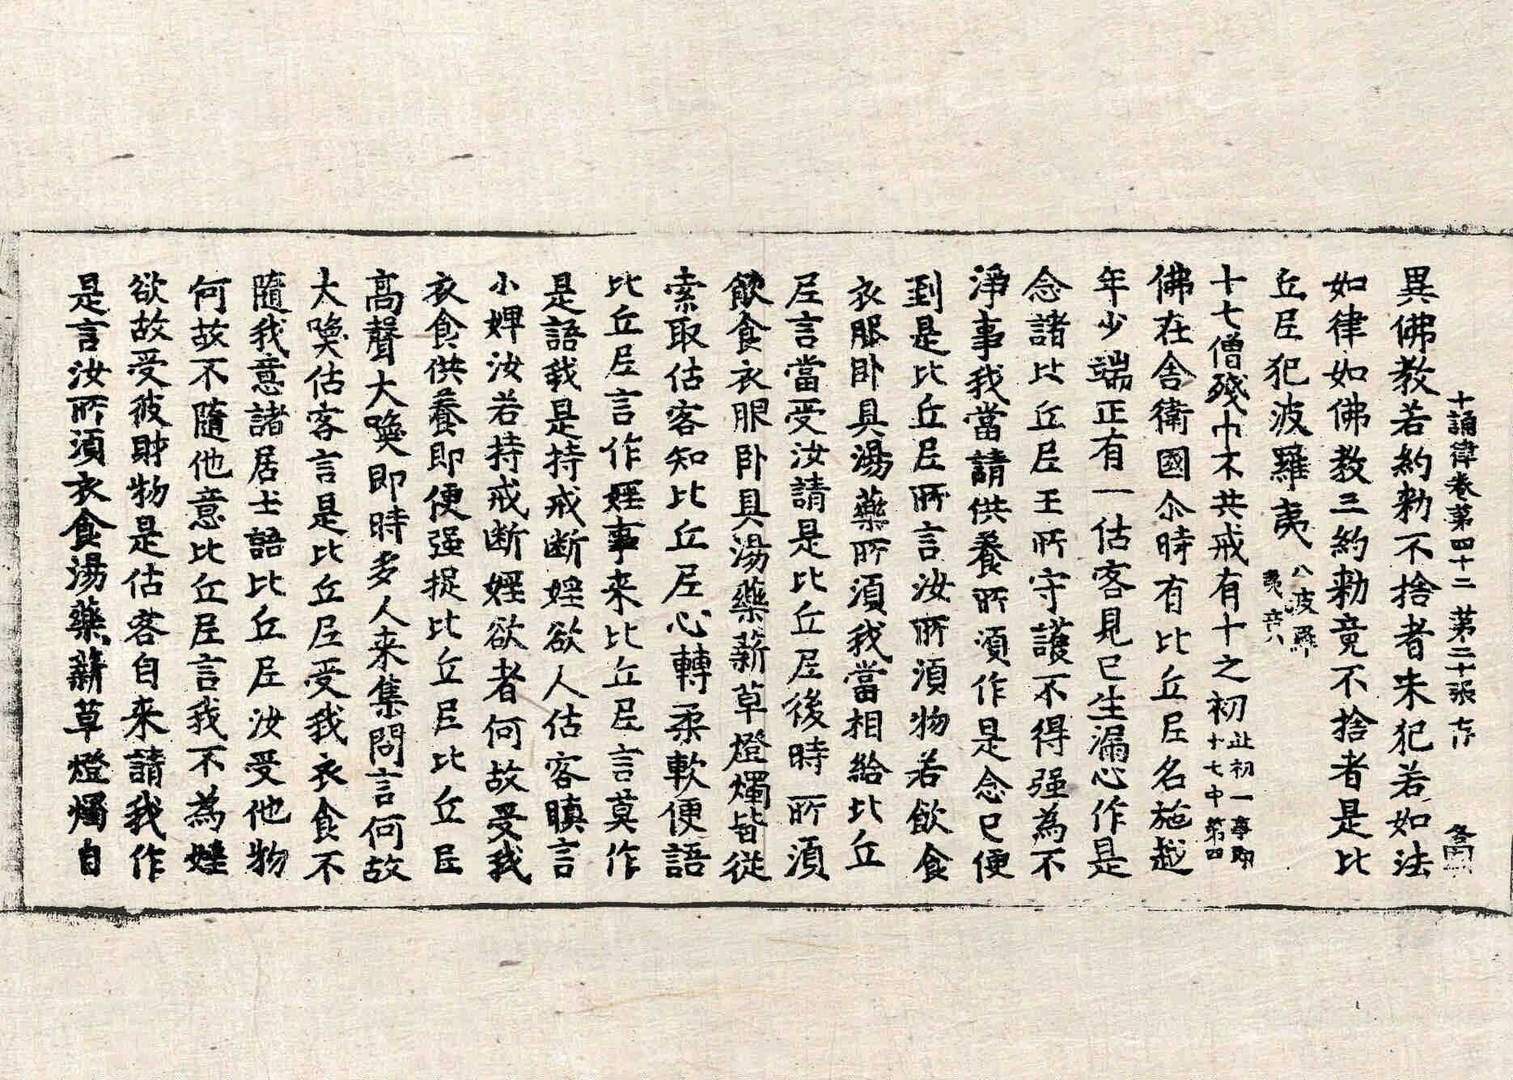 十誦律卷第四十二 第二十張 存
異佛教若約勑不捨者未犯若如法
如律如佛教三約勑竟不捨者是比
丘尼犯波羅夷 八波羅夷竟
十七僧殘中不共戒有十之初 此初一事即十七中第四
佛在舍衛國尒時有比丘尼名施越
年少端正有一估客見已生漏心作是
念諸比丘尼王所守護不得強為不
淨事我當請供養所須作是念已便
到是比丘尼所言汝所須物若飲食
衣服卧具湯藥所須我當相給比丘
尼言當受汝請是比丘尼後時所須
飲食衣服卧具湯藥薪草燈燭皆從
索取估客知比丘尼心轉柔軟便語
比丘尼言作婬事来比丘尼言莫作
是語我是持戒断婬欲人估客瞋言
小婢汝若持戒断婬欲者何故受我
衣食供養即便强捉比丘尼比丘尼
高聲大喚即時多人来集問言何故
大喚估客言是比丘尼受我衣食不
隨我意諸居士語比丘尼汝受他物
何故不隨他意比丘尼言我不為婬
欲故受彼財物是估客自来請我作
是言汝所須衣食湯藥薪草燈燭自